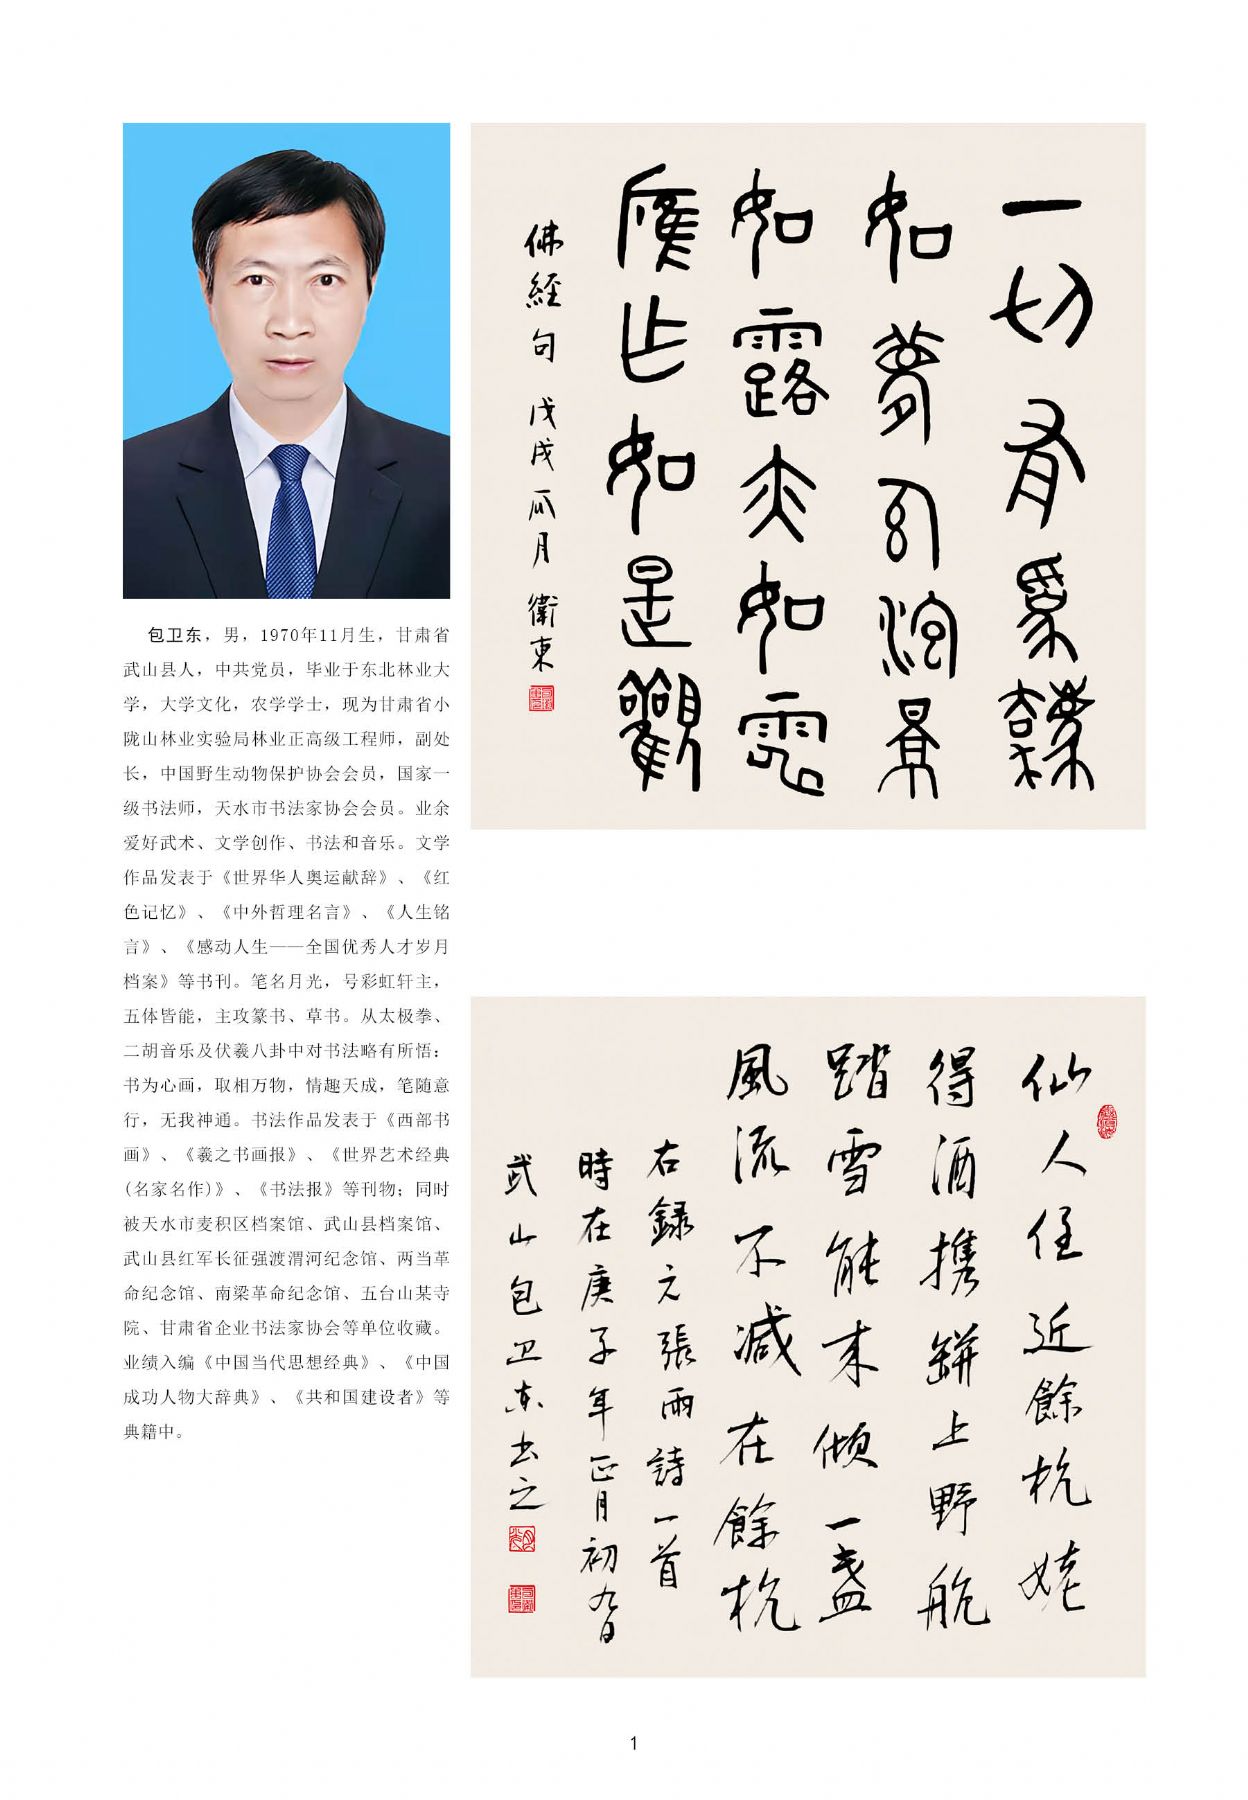 包卫东，男，1970年11月生，甘肃省
武山县人，中共党员，毕业于东北林业大
学，大学文化，农学学士，现为甘肃省小
陇山林业实验局林业正高级工程师，副处
长，中国野生动物保护协会会员，国家一
级书法师，天水市书法家协会会员。业余
爱好武术、文学创作、书法和音乐。文学
作品发表于《世界华人奥运献辞》、《红
色记忆》、《中外哲理名言》、《人生铭
言》、《感动人生——全国优秀人才岁月
档案》等书刊。笔名月光，号彩虹轩主，
五体皆能，主攻篆书、草书。从太极拳、
二胡音乐及伏羲八卦中对书法略有所悟：
书为心画，取相万物，情趣天成，笔随意
行，无我神通。书法作品发表于《西部书
画》、《羲之书画报》、《世界艺术经典
(名家名作)》、《书法报》等刊物；同时
被天水市麦积区档案馆、武山县档案馆、
武山县红军长征强渡渭河纪念馆、两当革
命纪念馆、南梁革命纪念馆、五台山某寺
院、甘肃省企业书法家协会等单位收藏。
业绩入编《中国当代思想经典》、《中国
成功人物大辞典》、《共和国建设者》等
典籍中。
一切有為
如夢幻泡景
如露亦如電
應作如是觀
佛經句 戊戌瓜月 衛東
仙人住近餘杭姥
得酒携缾上野航
踏雪能来倾一盏
風流不减在餘杭
右録元張雨詩一首
時在庚子年正月初九日
武山包卫东书之
1